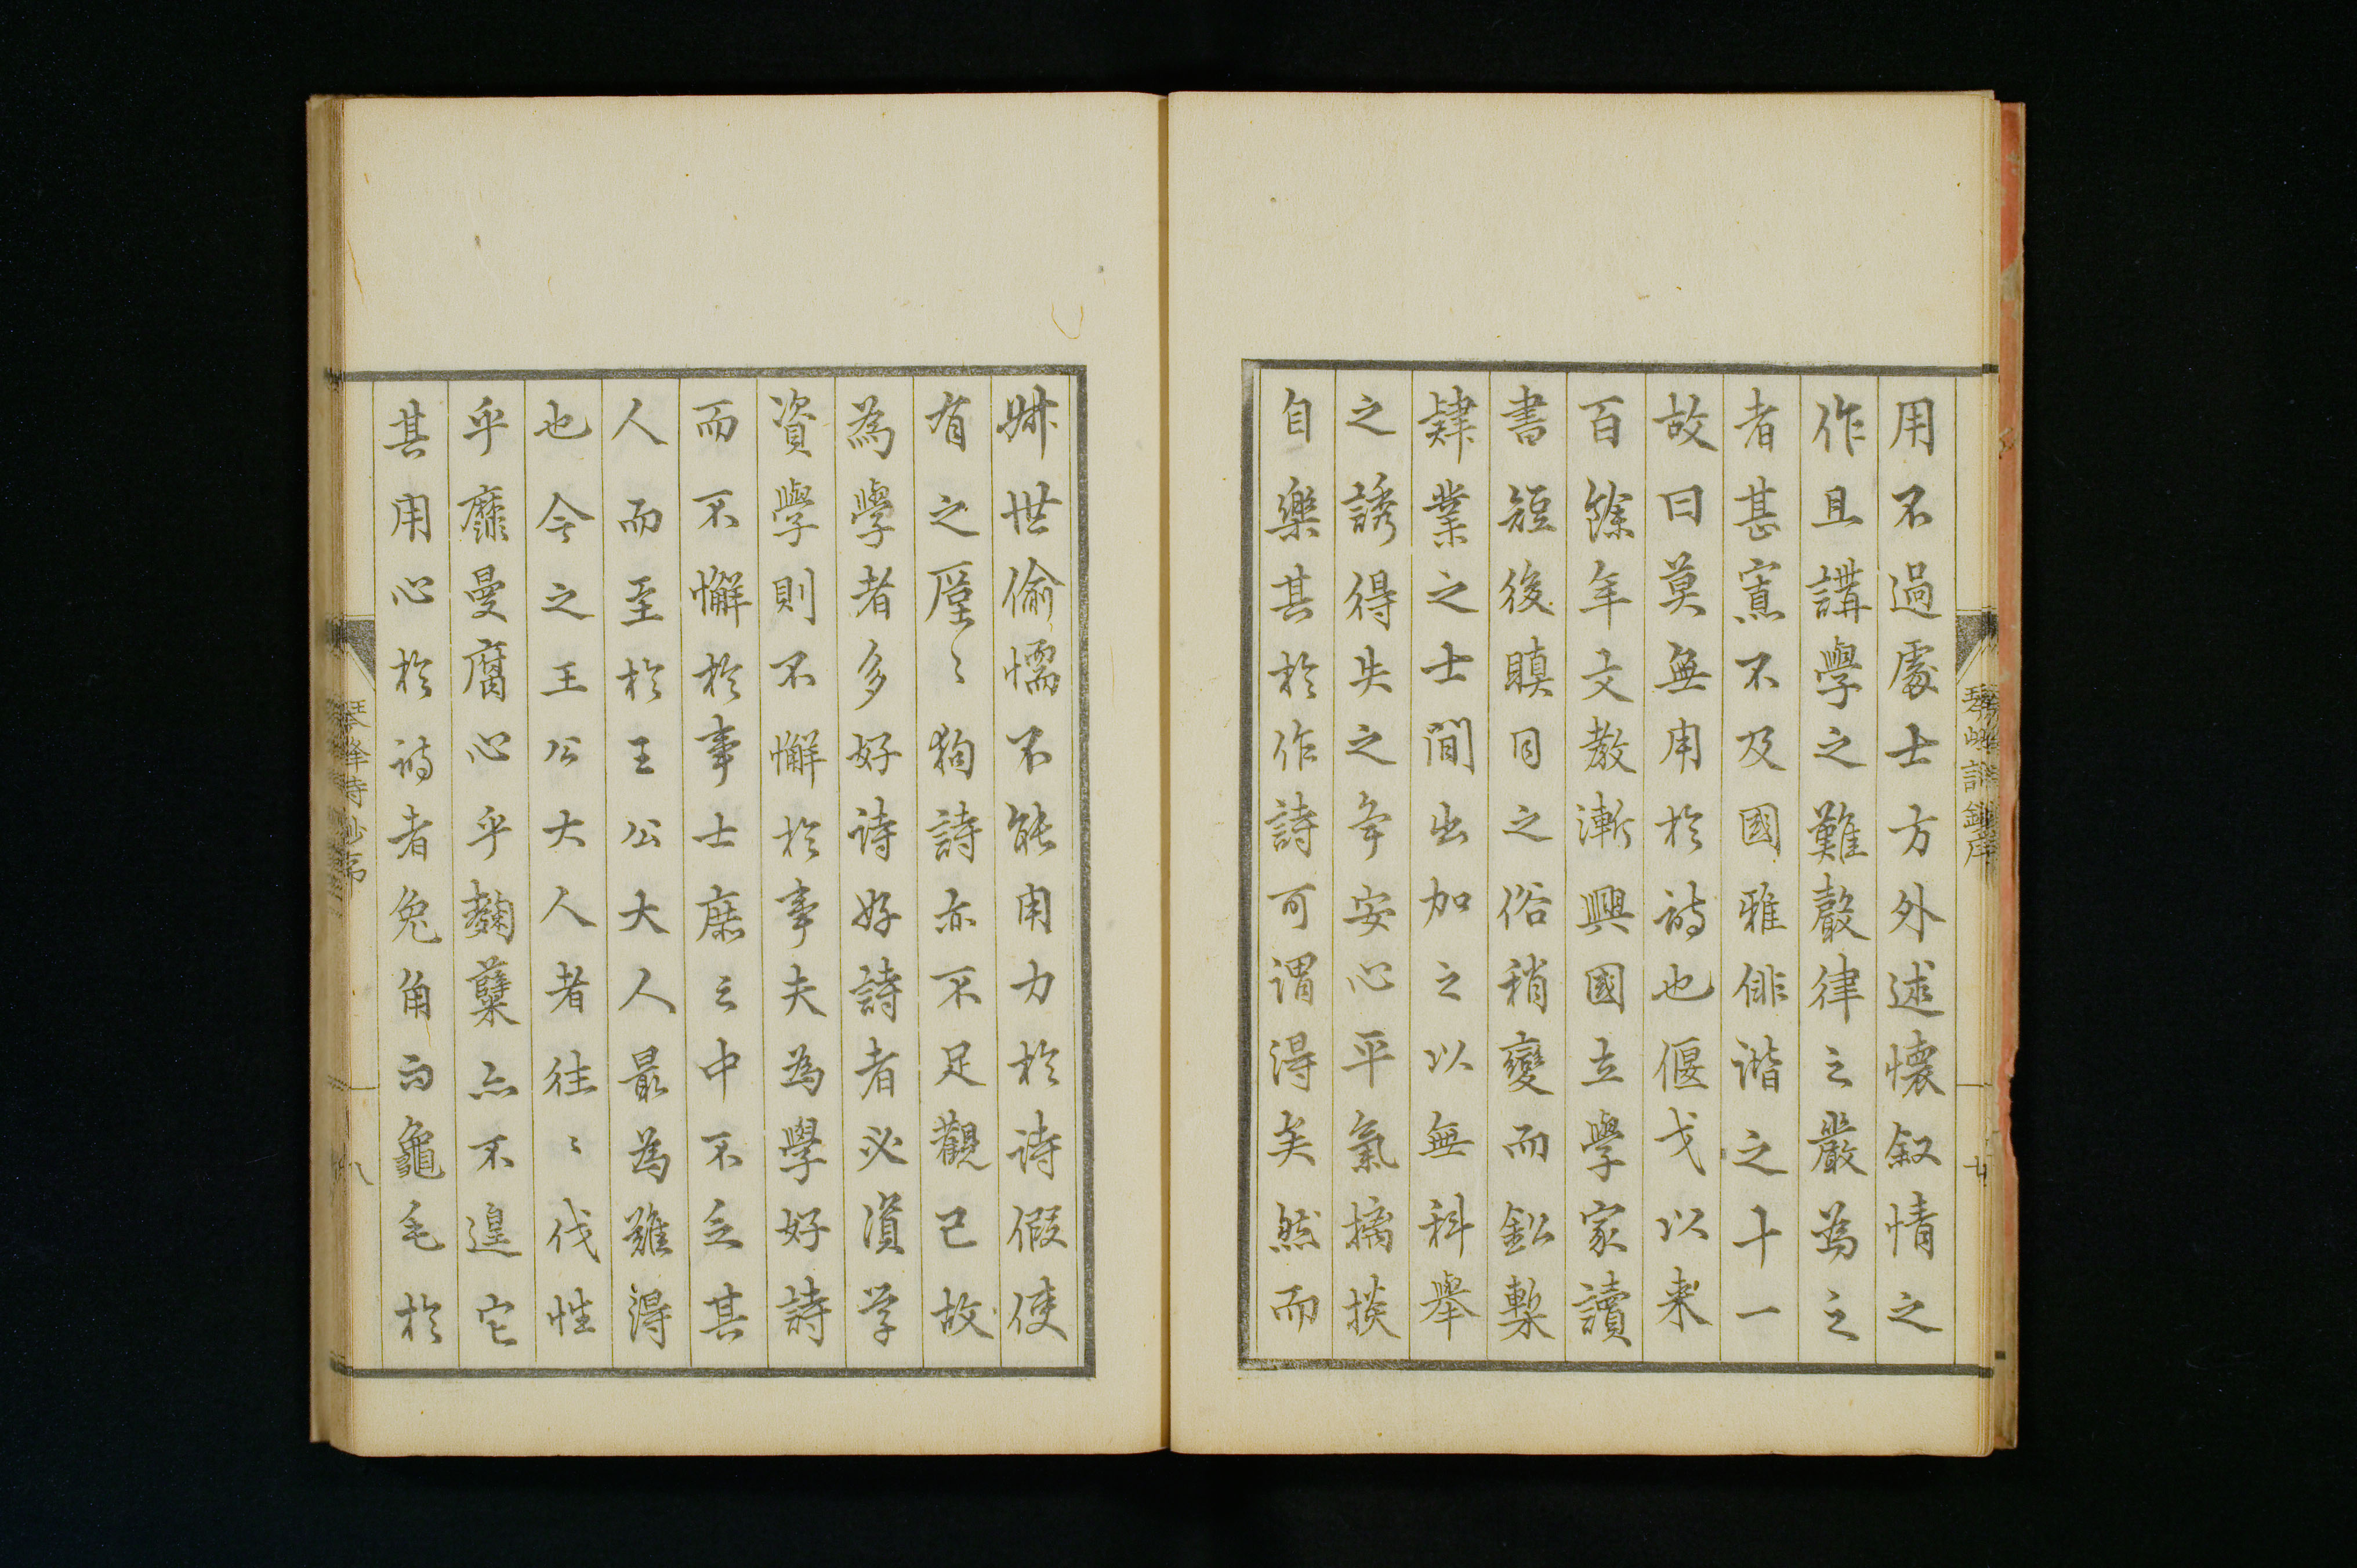 用不過處士方外述懷叙情之
作且講學之難嚴律之嚴為之
者甚寡不及國雅俳諧之十一
故曰莫無用於詩也偃戈以来
百餘年文教漸興國立學家讀
書短後瞋目之俗稍變而鉛槧
肄業之士間出加之以無科舉
之誘得失之争安心平氣摛掞
自樂其於作詩可謂得矣然而
世偷懦不能用力於詩假使
有之厪〻狗詩亦不足觀已故
為學者多好诗好詩者必資学
資學則不懈於事夫為學好詩
而不懈於事士庶之中不乏其
人而至於王公大人最為難得
也今之王公大人者往〻伐性
乎靡曼腐心乎麴蘖亦不遑它
其用心於詩者兔角而龜毛於
琴峰詩鈔序
八